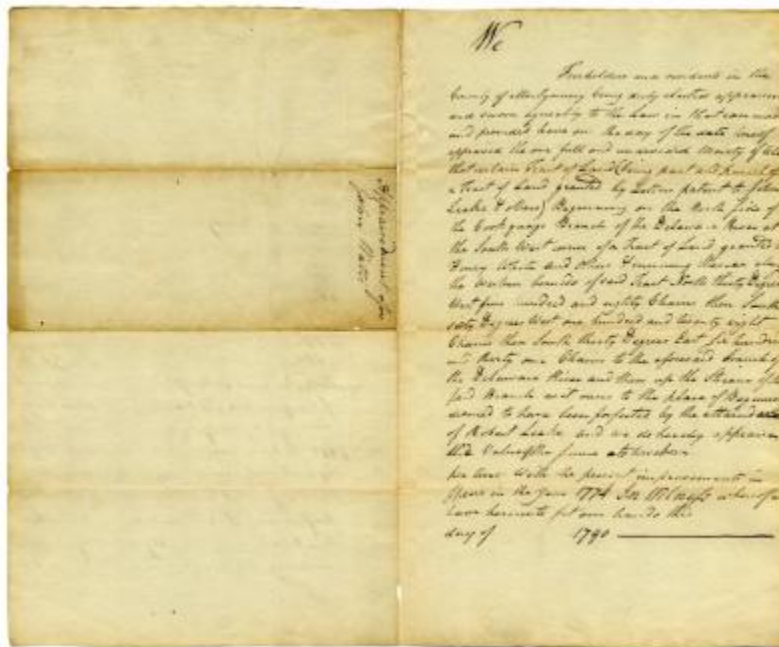 We
Freeholders and residents in the
County of Montgomery being duly elected appraisers
and sworn agreeably to the Law in that case made
and provided have on the day of the date hereof
appraised the one full and undivided Moiety of all
that certain Tract of Land (being part and parcel of
a Tract of Land granted by Letters patent to John
Leake & others) Beginning on the North side of
the Cookquago Branch of the Delaware River at
the South West corner of a Tract of Land granted
Henry White and others & running thence along
the Western bounds of said Tract North thirty Degrees
West five hundred and eighty Chains then South
sixty Degrees West one hundred and twenty eight
Chains then South thirty Degrees East six hundred
and thirty one Chains to the aforesaid Branch of
the Delaware River and then up the Stream of
said Branch as it runs to the place of Beginning
deemed to have been forfeited by the attainder
of Robert Leake and we do hereby appraise
the Value of the same
per Acre with the present improvements in
Specie in the Year 1774 In Witness whereof we
have hereunto put our hands this
day of 1790
Appraisement for
John Watts